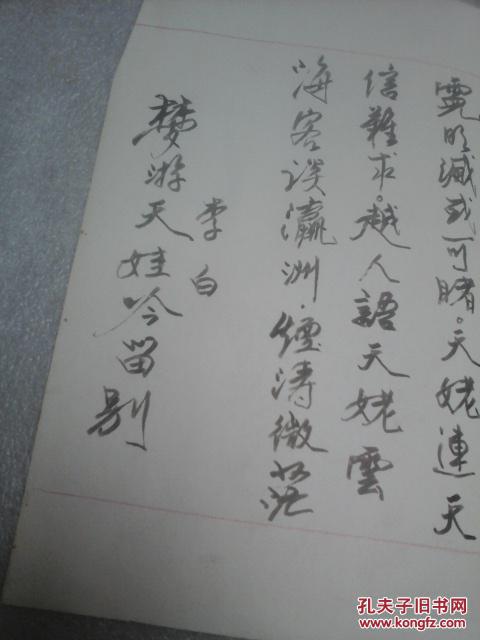 梦游天娃吟留别
李白
海客谈瀛洲.煙涛微茫
信難求。越人語天姥雲
霓明滅或可睹。天姥連天
孔夫子旧书网
www.kongfz.com